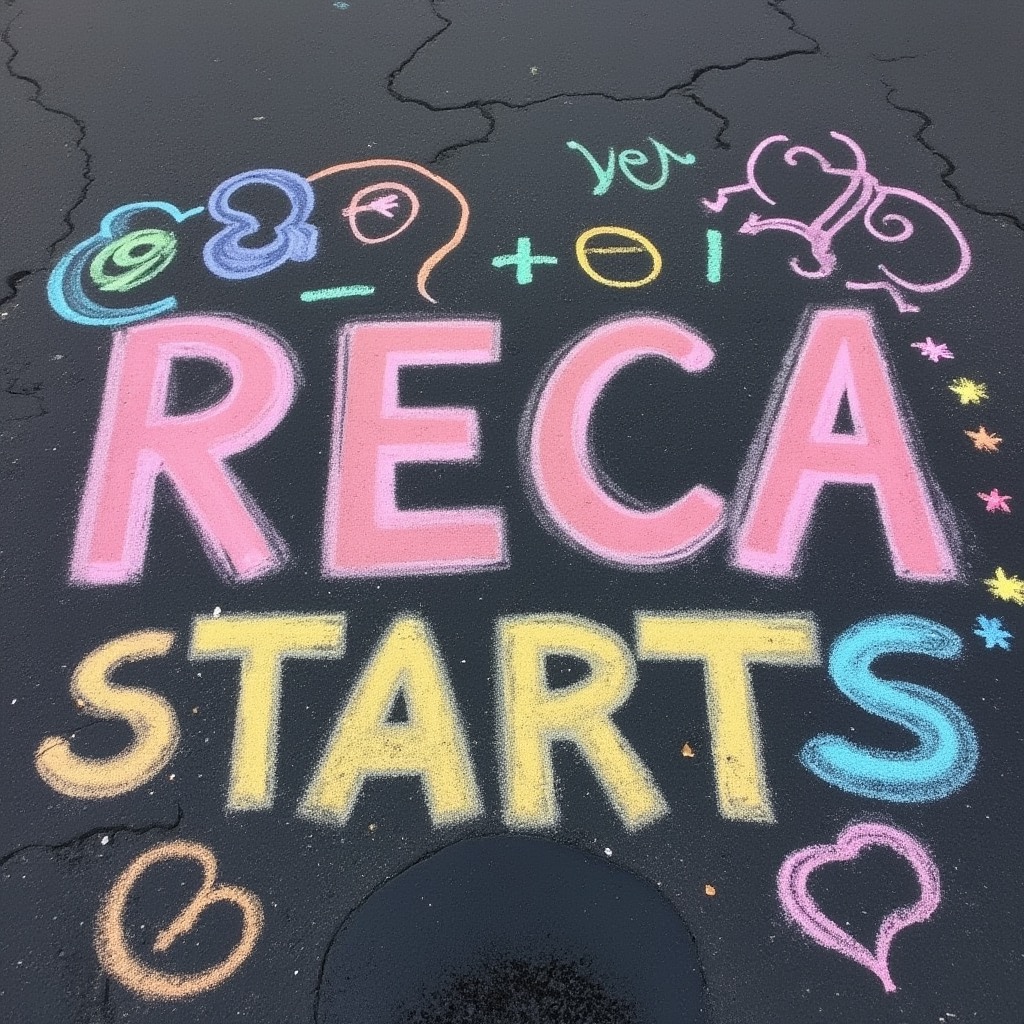 ver
RECA
STARTS